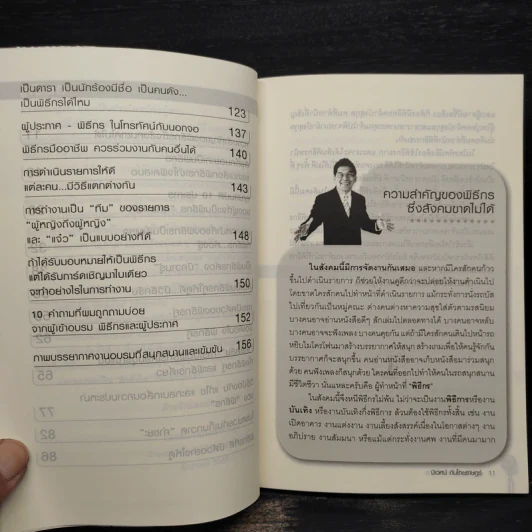 เป็นดารา เป็นนักร้องมีชื่อ เป็นคนดัง...
เป็นพิธีกรได้ไหม
123
ผู้ประกาศ - พิธีกร ในโทรทัศน์กับนอกจอ
137
พิธีกรมืออาชีพ ควรร่วมงานกับคนอื่นได้
140
การดำเนินรายการให้ดี
แต่ละคน...มีวิธีแตกต่างกัน
143
การทำงานเป็น "ทีม" ของรายการ
"ผู้หญิงถึงผู้หญิง"
และ "แจ๋ว" เป็นแบบอย่างที่ดี
148
ถ้าได้รับมอบหมายให้เป็นพิธีกร
แต่ได้รับการ์ดเชิญมาใบเดียว
จะทำอย่างไรในการทำงาน
150
10 คำถามที่พบถูกถามบ่อย
จากผู้เข้าอบรม พิธีกรและผู้ประกาศ
152
ภาพบรรยากาศงานอบรมที่สนุกสนานและเข้มข้น
156
ความสำคัญของพิธีกร
ซึ่งสังคมขาดไม่ได้
ในสังคมนี้มีการจัดงานกันเสมอ และหากมีใครสักคนก้าว
ขึ้นไปดำเนินรายการ ก็ช่วยให้งานดูดีกว่าจะปล่อยให้งานดำเนินไป
โดยขาดใครสักคนไปทำหน้าที่ดำเนินรายการ แม้กระทั่งการนั่งรถบัส
ไปเที่ยวกันเป็นหมู่คณะ ต่างคนต่างหาความสุขใส่ตัวตามรสนิยม
บางคนอาจจะอ่านหนังสือดีๆ สักเล่มไปตลอดทางได้ บางคนอาจจะหลับ
บางคนอาจจะฟังเพลง บางคนคุยกัน แต่ถ้ามีใครสักคนเดินไปหน้ารถ
หยิบไมโครโฟนมาสร้างบรรยากาศให้สนุก สร้างเกมเพื่อให้คนรู้จักกัน
บรรยากาศก็จะสนุกขึ้น คนอ่านหนังสืออาจเก็บหนังสือมาร่วมสนุก
ด้วย คนฟังเพลงก็สนุกด้วย ใครคนที่ออกไปทำให้คนในรถสนุกสนาน
มีชีวิตชีวา นั่นแหละครับคือ ผู้ทำหน้าที่ "พิธีกร"
ในสังคมนี้จึงหนีพิธีกรไม่พ้น ไม่ว่าจะเป็นงานพิธีการหรืองาน
บันเทิง หรืองานบันเทิงกึ่งพิธีการ ล้วนต้องใช้พิธีกรทั้งสิ้น เช่น งาน
เปิดอาคาร งานแต่งงาน งานเลี้ยงสังสรรค์เนื่องในโอกาสต่างๆ งาน
อภิปราย งานสัมมนา หรือแม้แต่กระทั่งงานศพ งานที่มีคนมามาก
นิเวศน์ กันไทยราษฎร์ 11